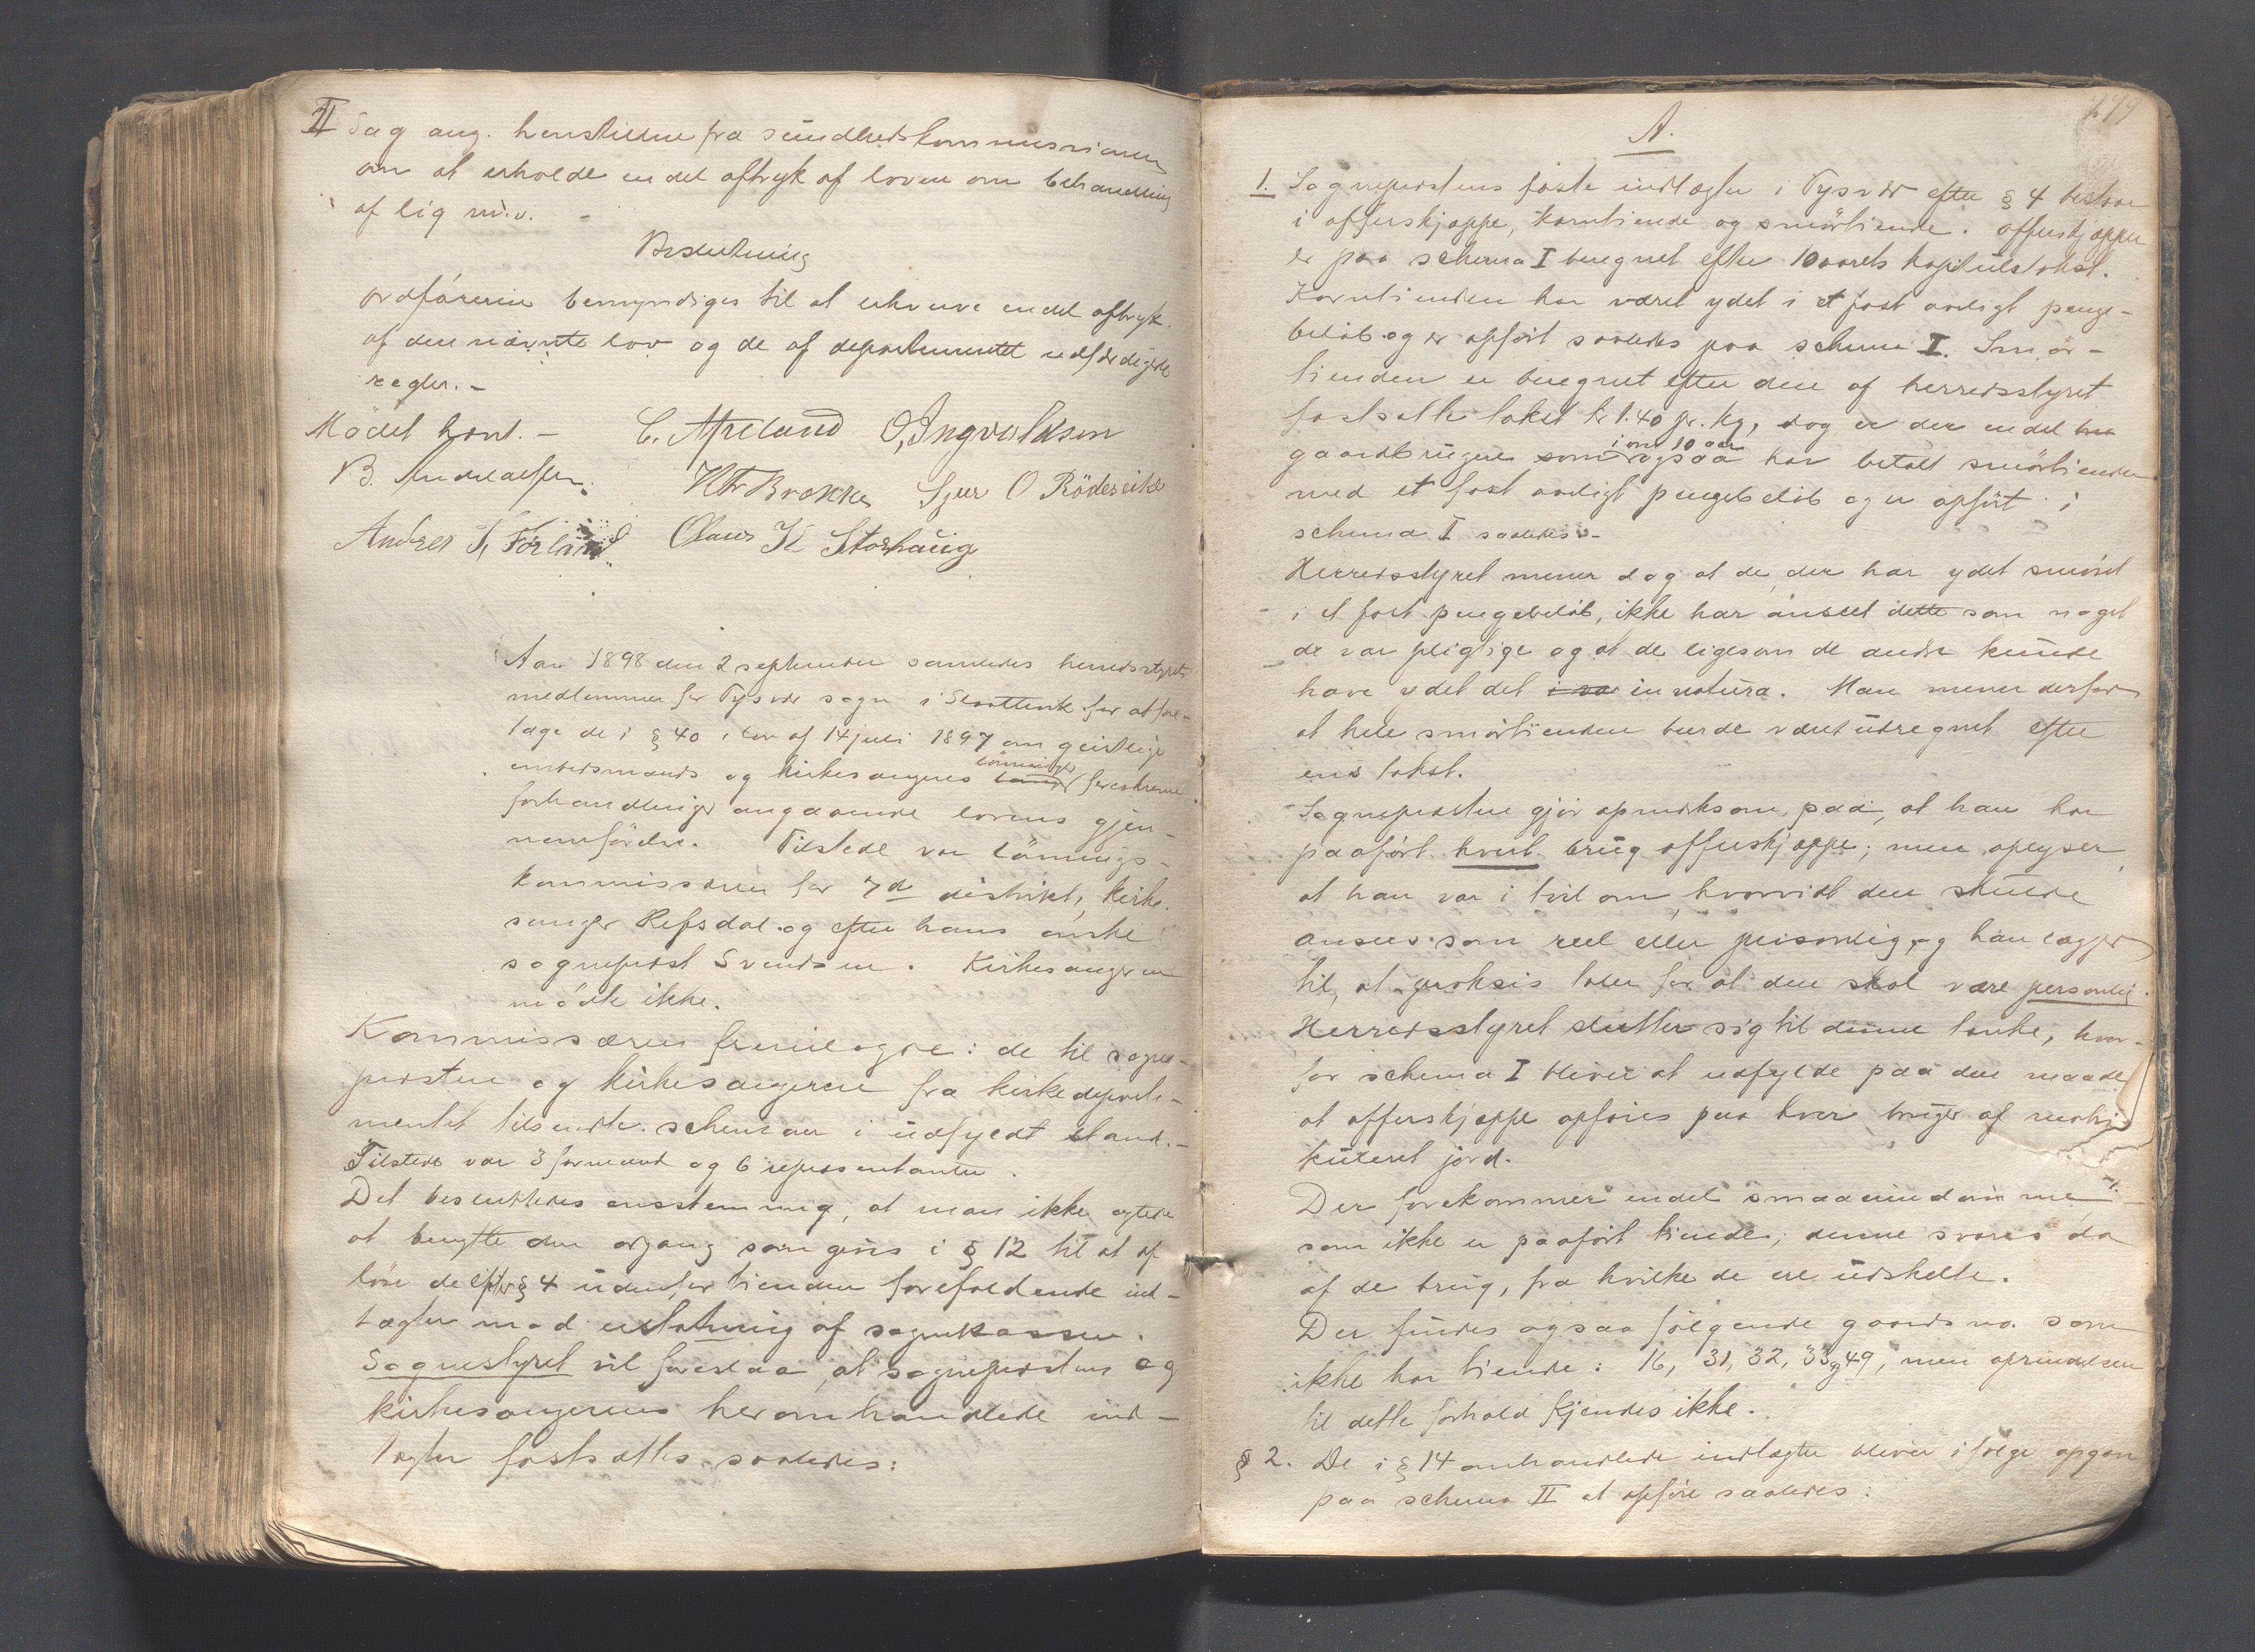 II Sag ang. henstillen fra sundhedskommissionen
om at erholde en del aftryk af loven om behandling
af lig m.v. –
Beslutning
ordføreren bemyndiges til at erhverve en del aftryk
af den nævnte lov og de af departementet udfærdigede
regler. –
Mødet hævet. – C. Apeland O, Ingvaldsen
B. Andreassen. Sjur O Rødereike
Andres T, Førland Olaus K Storhaug
Aar 1898 den 2 september samledes herredsstyrets
medlemmer for Tysvær sogn i Slaattevik for at fore-
tage de i § 40 i lov af 14 juli 1897 om geistlige
embedsmænds og kirkesangeres lønninger foreskrevne
forhandlinger angaaende lovens gjen-
nemførelse. Tilstede var lønnings-
kommissæren for 7de distrikt, kirke-
sanger Refsdal og efter hans ønske
sogneprest Svendsen. Kirkesangeren
mødte ikke.
Kommissæren fremlagde: de til sogne-
presten og kirkesangeren fra kirkedeparte-
mentet tilsendte schemaer i udfyldt stand. –
Tilstede var 3 formænd og 6 repræsentanter.
Det besluttedes enstemmig, at man ikke agtede
at benytte den adgang som gives i § 12 til at af
løse de efter § 4 udenfor tienden forefaldende ind-
tægter mod erstatning af sognekassen.
Sognestyret vil foreslaa, at sogneprestens og
kirkesangerens heromhandlede ind-
tægter fastsættes saaledes:
A.
1. Sogneprestens faste indtægter i Tysvær efter § 4 bestaar
i offerskjæppe, korntiende og smørtiende. Offerskjæppen
er paa schema I beregnet efter 10 aarets kapitelstakst.
Korntienden har været ydet i et fast aarligt penge-
beløb og er opført saaledes paa schema I. Smør-
tienden er beregnet efter den af herredsstyret
fastsatte takst kr 1.40 pr. kg, dog er der en del
gaardbrugere som i over 10 aar har betalt smørtienden
med et fast aarligt pengebeløb og er opført i
schema I saaledes. –
Herredsstyret mener dog at de, der har ydet smøret
i et fast pengebeløb, ikke har anseet dette som noget
de var pligtige og at de ligesom de andre kunde
have ydet det i na in natura. Man mener derfor
at hele smørtienden burde været udregnet efter
ens takst.
Sognepresten gjør opmerksom paa, at han har
paaført hvert brug offerskjæppe; men oplyser
at han var i tvil om, hvorvidt den skulde
ansees som reel eller personlig, og han lægger
til, at praksis taler for at den skal være personlig.
Herredsstyret slutter sig til denne tanke, hvor-
for schema I bliver at udfylde paa den maade
at offerskjæppe opføres paa hver bruger af matri-
kuleret jord.
Der forekommer endel smaaeiendomme,
som ikke er paaført tiende; denne svares da
af de brug, fra hvilke de ere udskilte.
Der findes ogsaa følgende gaards no. som
ikke har tiende: 16, 31, 32, 33 og 49, men oprindelsen
til dette forhold kjendes ikke.
§ 2. De i § 14 omhandlede indtægter bliver ifølge opgave
paa schema II at opføre saaledes: